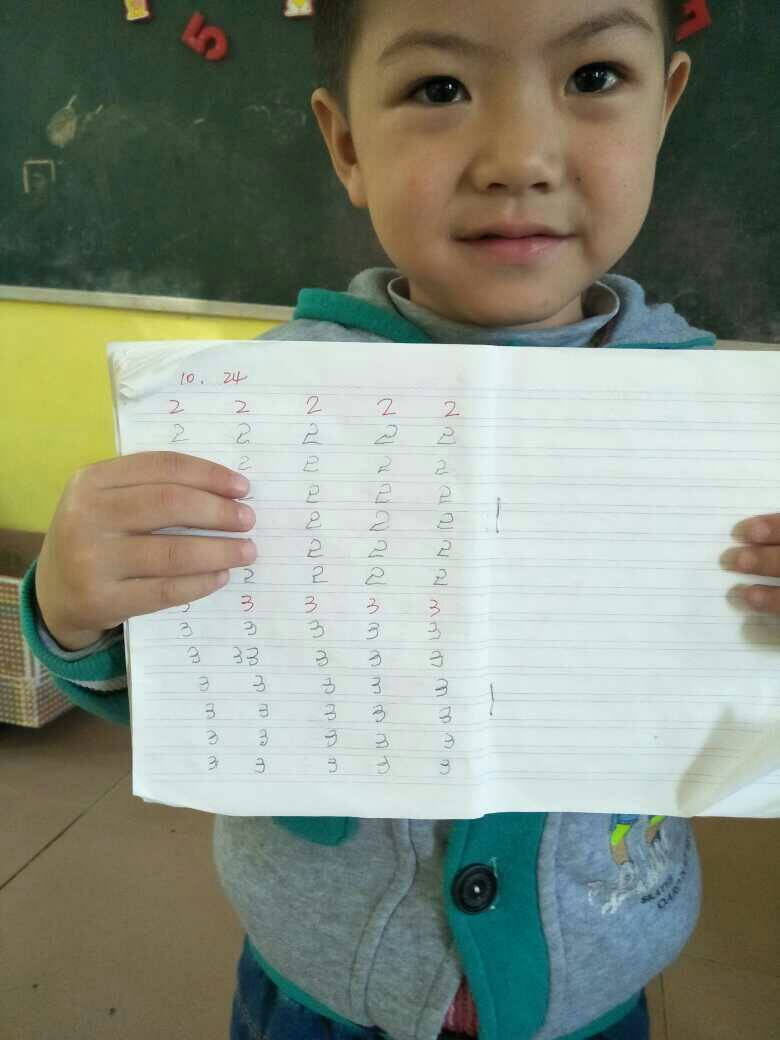 5
10. 24
2 2 2 2 2
2 2 2 2 2
2 2 2 2
2 2 2
2 2 2
2 2 2
2 2 2 2
3 3 3 3 3
3 3 3 3 3
3 33 3 3 3
3 3 3 3 3
3 3 3 3 3
3 3 3 3 3
3 3 3 3 3